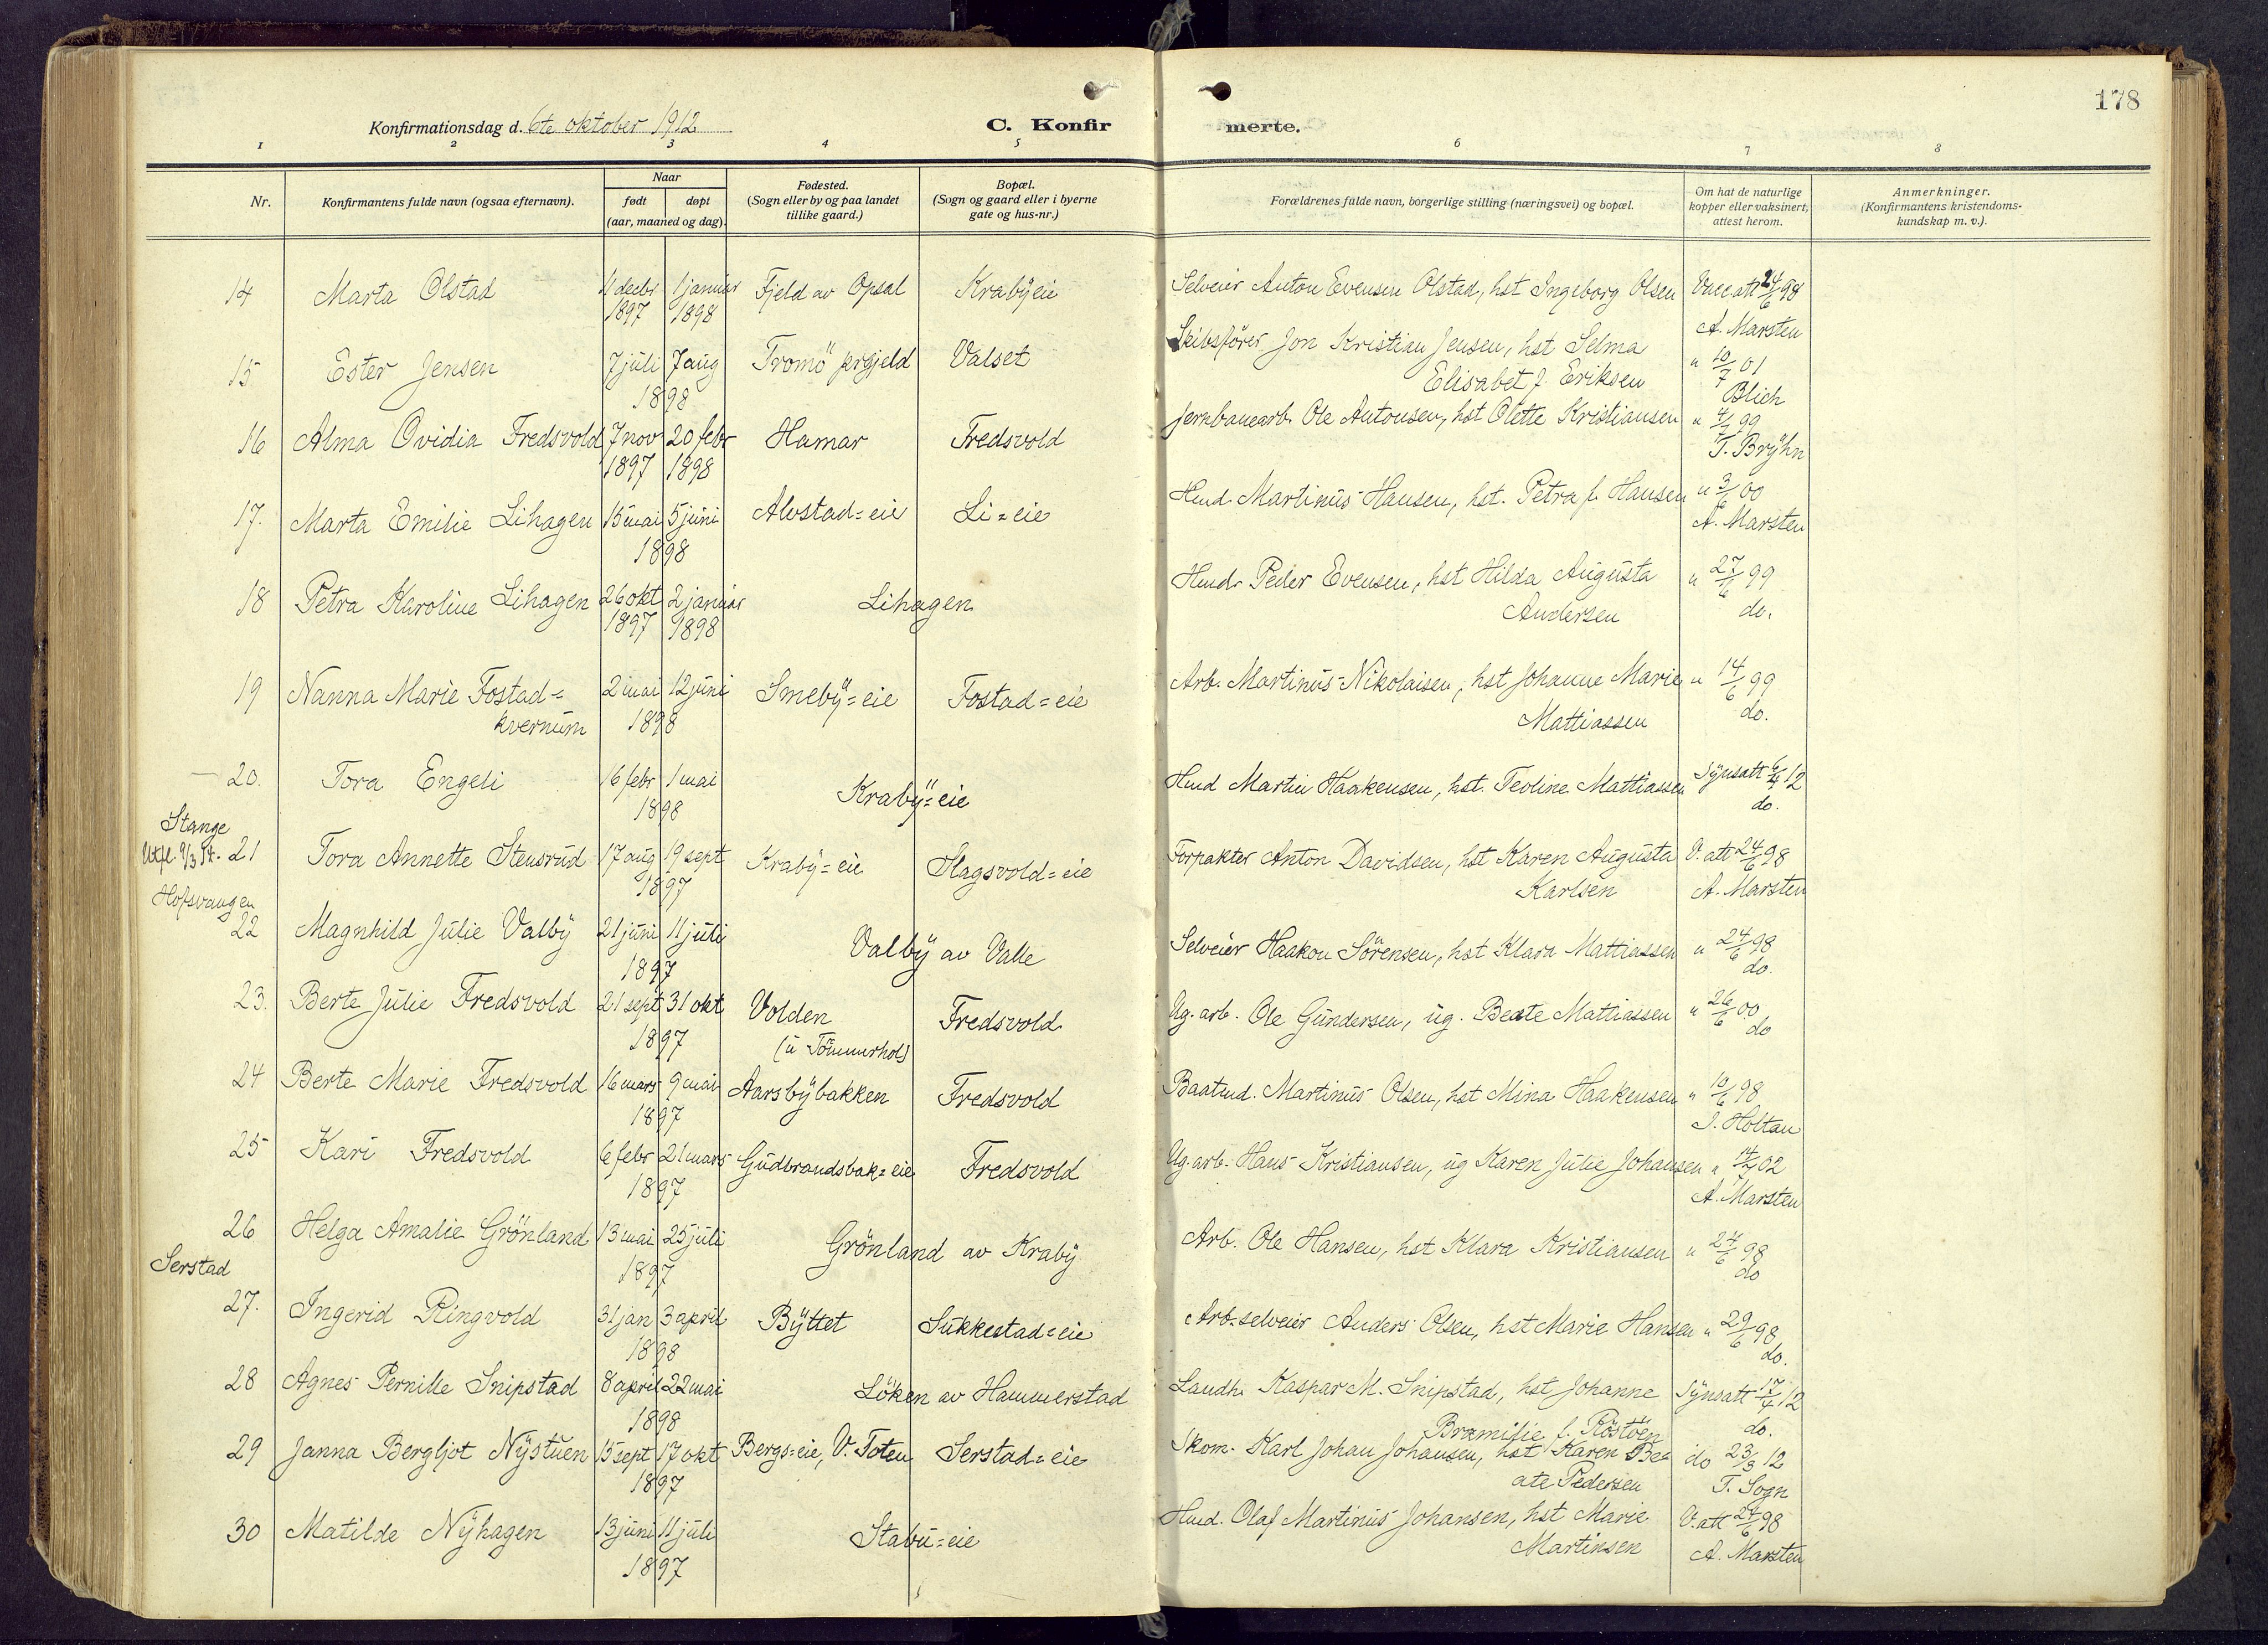 178
Konfirmationsdag d. 6te oktober 1912
C. Konfirmerte.
1 2 3 4 5 6 7 8
Nr.
Konfirmantens fulde navn (ogsaa efternavn).
Naar
født døpt
(aar, maaned og dag).
Fødested.
(Sogn eller by og paa landet
tillike gaard.)
Bopæl.
(Sogn og gaard eller i byerne
gate og hus-nr.)
Forældrenes fulde navn, borgerlige stilling (næringsvei) og bopæl.
Om hat de naturlige
kopper eller vaksinert,
attest herom.
Anmerkninger.
(Konfirmantens kristendoms-
kundskap m. v.).
14 Marta Olstad 11 decbr 1 januar Fjeld av Opsal Krabÿeie Selveier Anton Evensen Olstad, hst Ingeborg Olsen Vacc att 24/6 98
1897 1898 A. Marsten
15 Ester Jensen 7 juli 7 aug Tromö prgjeld Valset Skibsförer Jon Kristian Jensen, hst Selma " 10/7 01
1898 Elisabet f. Eriksen Blich
16 Alma Ovidia Fredsvold 7 nov 20 febr Hamar Fredsvold Jernbanearb. Ole Antonsen, hst Olette Kristiansen " 99
1897 1898 T. Brÿhn
17. Marta Emilie Lihagen 15 mai 5 juni Alvstad=eie Li=eie Hmd. Martinus Hansen, hst. Petra f. Hansen " 3/6 00
1898 A. Marsten
18 Petra Karoline Lihagen 26 okt 2 januar Lihagen Hmd. Peder Evensen, hst Hilda Augusta " 27/6 99
1897 1898 Andersen do.
19 Nanna Marie Fostad= 2 mai 12 juni Smebÿ=eie Fostad=eie Arb. Martinus Nikolaisen, hst Johanne Marie " 14/6 99
kvernum 1898 Mattiassen do.
20. Tora Engeli 16 febr 1 mai Krabÿ=eie Hmd Martin Haakensen, hst. Teoline Mattiassen Sÿnsatt 12
1898 do.
Stange
Utfl. 9/3 14. 21 Tora Annette Stensrud 17 aug 19 sept Krabÿ=eie Slagsvold=eie Forpakter Anton Davidsen, hst Karen Augusta V. att 24/6 98
1897 Karlsen A. Marsten
Hofsvangen
22 Magnhild Julie Valbÿ 21 juni 11 juli Valbÿ av Valle Selveier Haakon Sörensen, hst Klara Mattiassen " 24/6 98
1897 do.
23. Berte Julie Fredsvold 21 sept 31 okt Volden Fredsvold Ug. arb. Ole Gundersen, ug. Beate Mattiassen " 26/6 00
1897 (u Tömmerhol) do
24 Berte Marie Fredsvold 16 mars 9 mai Aarsbÿbakken Fredsvold Baatmd. Martinus Olsen, hst Mina Haakensen " 10/6 98
1897 J. Holtan
25 Kari Fredsvold 6 febr 21 mars Gudbrandsbak=eie Fredsvold Ug. arb. Hans Kristiansen, ug Karen Julie Johansen " 02
1897 A. Marsten
26 Helga Amalie Grönland 13 mai 25 juli Grönland av Krabÿ Arb. Ole Hansen, hst Klara Kristiansen " 24/6 98
1897 do
Serstad
27. Ingerid Ringvold 31 jan 3 april Bÿttet Sukkestad=eie Arb.selveier Anders Olsen, hst Marie Hansen " 29/6 98
1898 do.
28 Agnes Pernille Snipstad 8 april 22 mai Löken av Hammerstad Landh. Kaspar M. Snipstad, hst Johanne Sÿnsatt 17/4 12
1898 Bræmilie f. Röstöen do.
29 Janna Bergljot Nÿstuen 15 sept 17 okt Bergs=eie, V. Toten Serstad=eie Skom. Karl Johan Johansen, hst Karen Be= do 23/3 12
1897 ate Pedersen T. Sogn
30 Matilde Nÿhagen 13 juni 11 juli Stabu=eie Hmd. Olaf Martinus Johansen, hst Marie V. att 24/6 98
1897 Martinsen A. Marsten